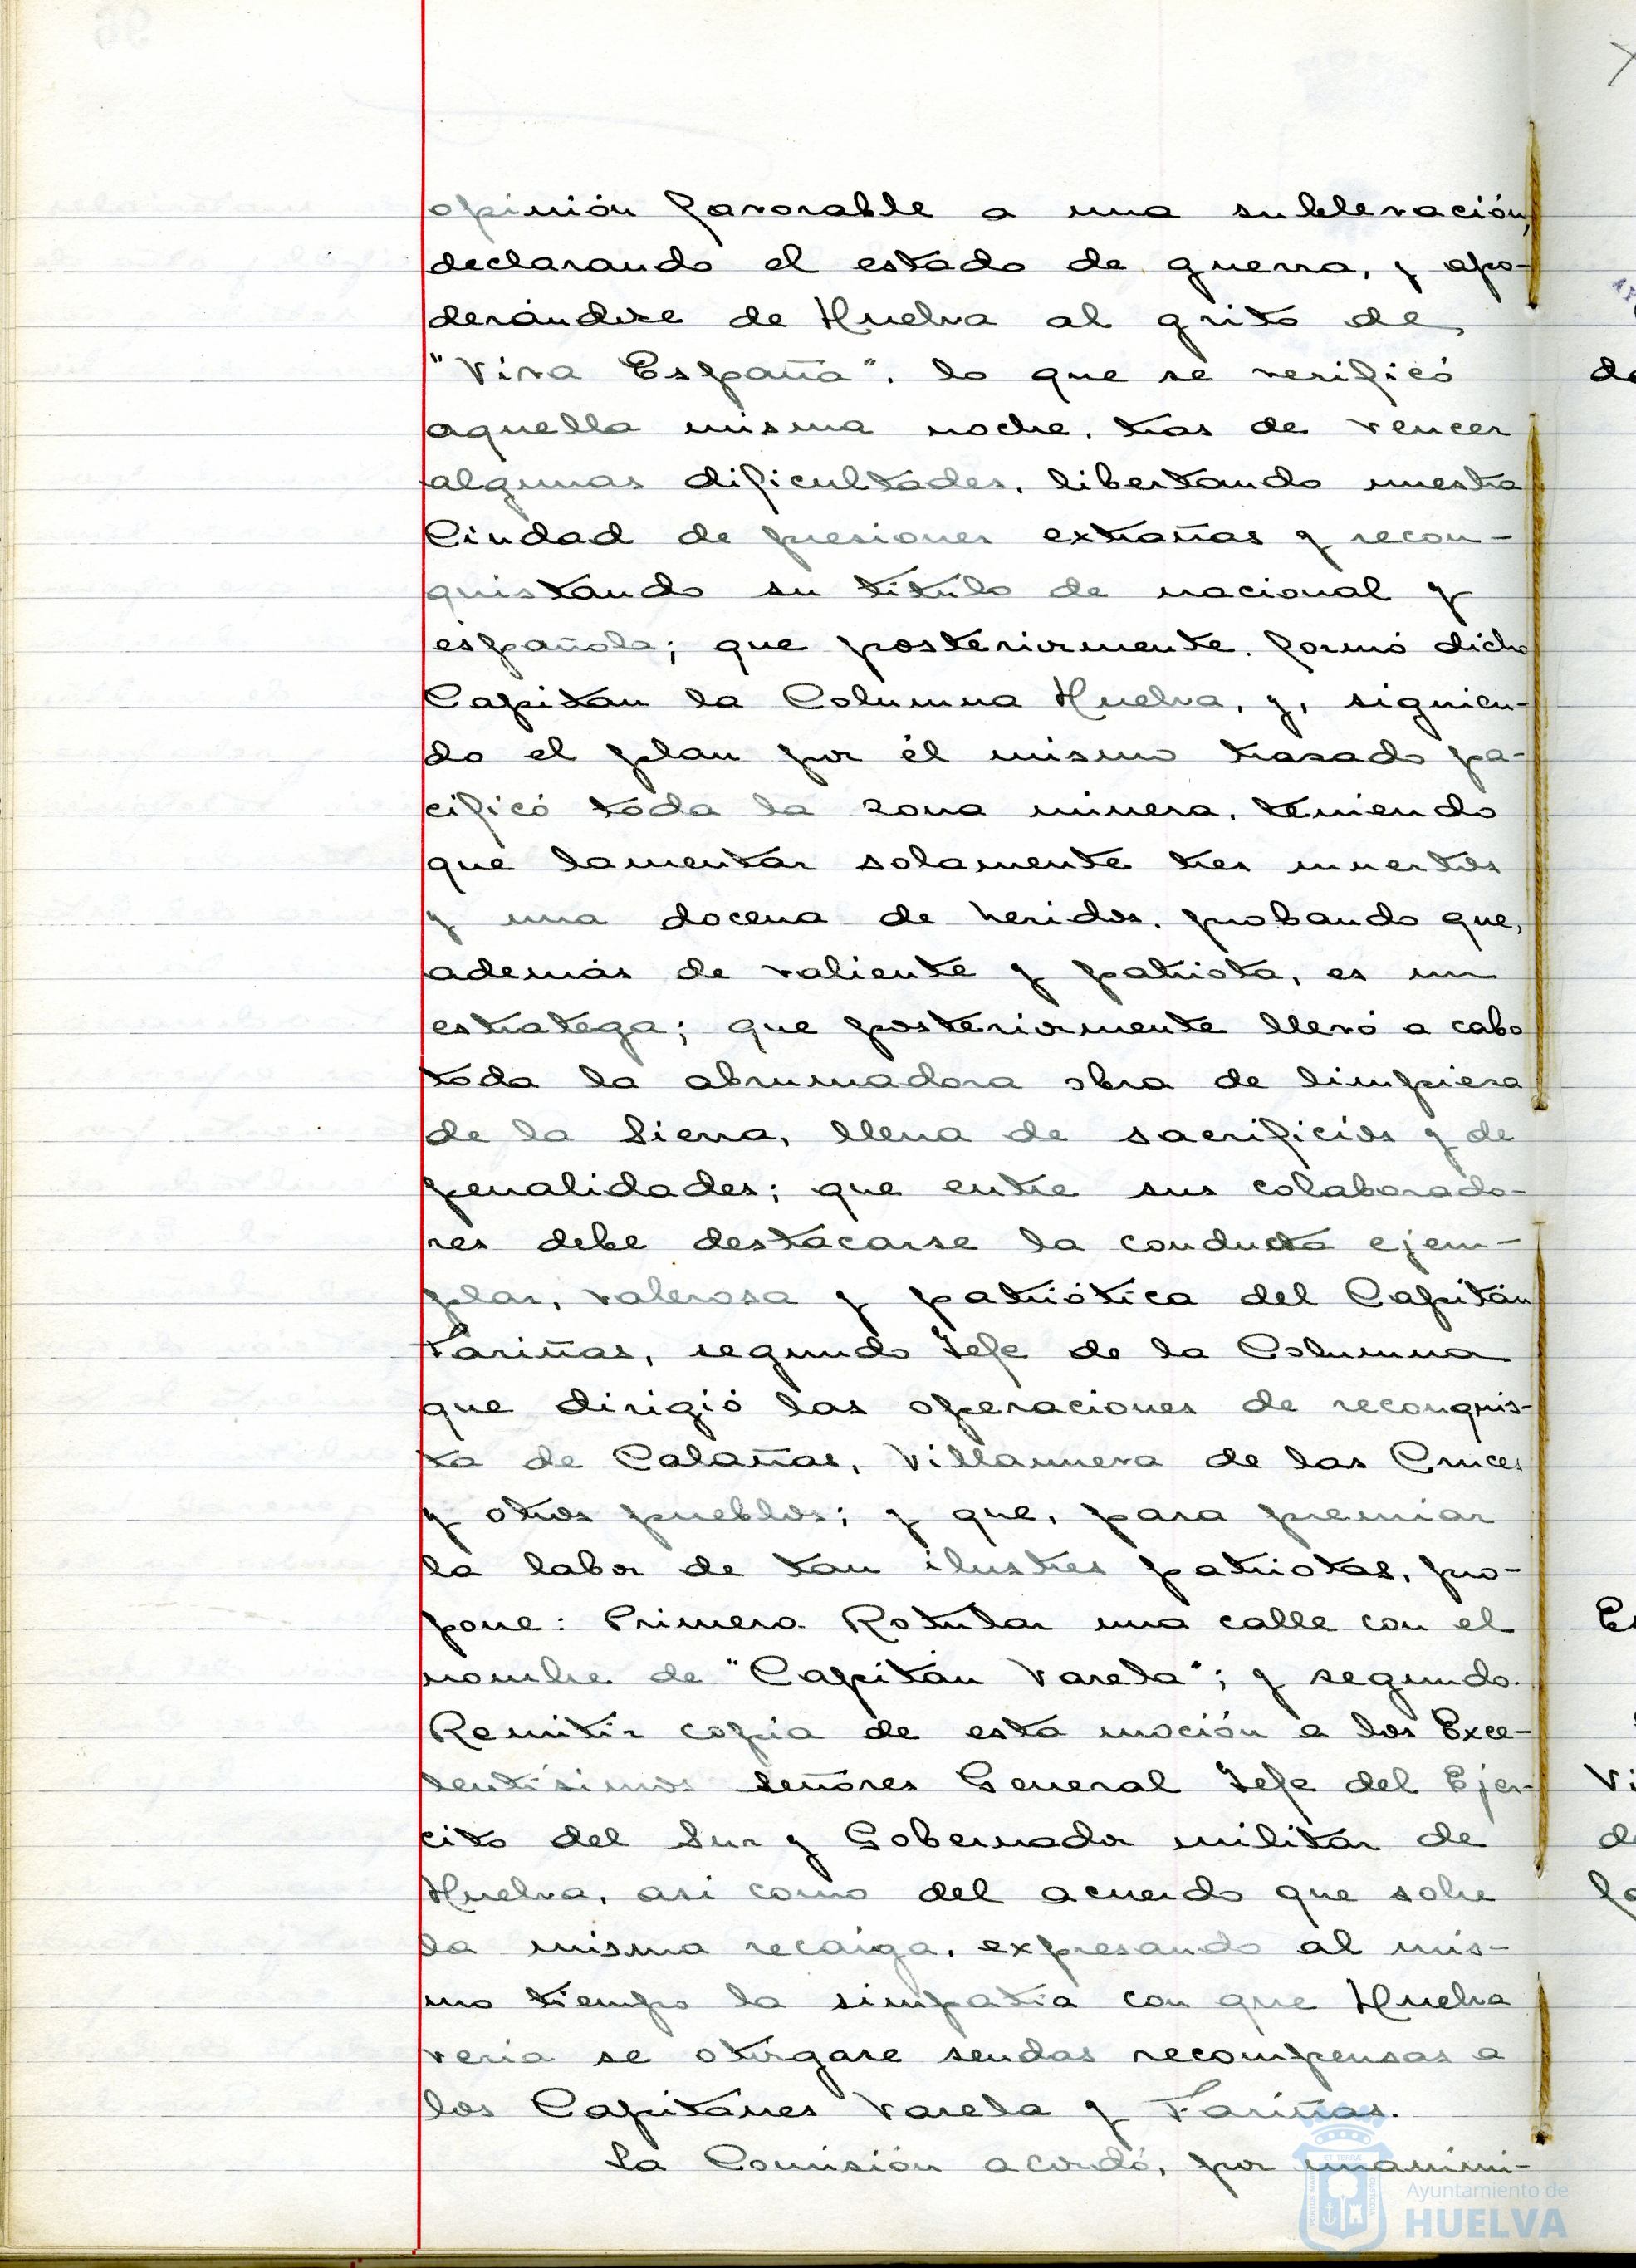 opinión favorable a una sublevación,
declarando el estado de guerra, y apo-
derándose de Huelva al grito de
"Viva España", lo que se verificó
aquella misma noche, tras de vencer
algunas dificultades, libertando nuestra
Ciudad de presiones extrañas y recon-
quistando su título de nacional y
española; que posteriormente, formó dicho
Capitán la Columna Huelva, y, siguien-
do el plan por él mismo trazado pa-
cificó toda la zona minera, teniendo
que lamentar solamente tres muertos
y una docena de heridos, probando que,
además de valiente y patriota, es un
estratega; que posteriormente llevó a cabo
toda la abrumadora obra de limpieza
de la Sierra, llena de sacrificios y de
penalidades; que entre sus colaborado-
res debe destacarse la conducta ejem-
plar, valerosa y patriótica del Capitán
Fariñas, segundo Jefe de la Columna
que dirigió las operaciones de reconquis-
ta de Calañas, Villanueva de las Cruces
y otros pueblos; y que, para premiar
la labor de tan ilustres patriotas, pro-
pone: Primero. Rotular una calle con el
nombre de "Capitán Varela"; y segundo.
Remitir copia de esta moción a los Exce-
lentísimos Señores General Jefe del Ejér-
cito del Sur y Gobernador militar de
Huelva, así como del acuerdo que sobre
la misma recaiga, expresando al mis-
mo tiempo la simpatía con que Huelva
vería se otorgase sendas recompensas a
los Capitanes Varela y Fariñas.
La Comisión acordó, por unanimi-
Ayuntamiento de
HUELVA